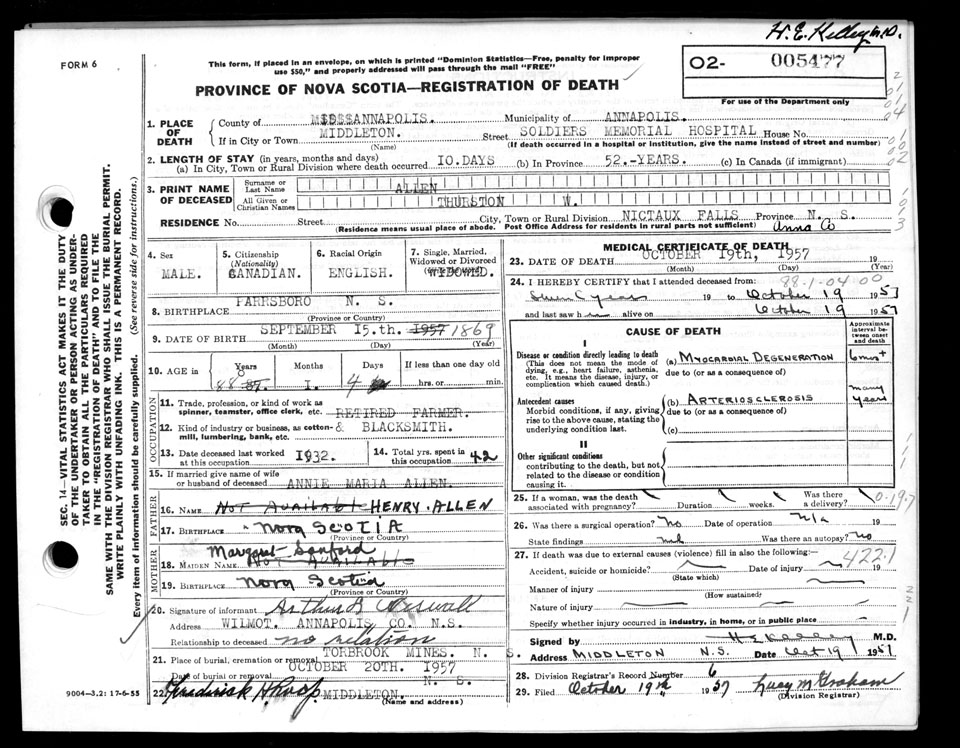 H. E. Kelley M.D.
FORM 6
This form, if placed in an envelope, on which is printed "Dominion Statistics—Free, penalty for improper
use $50," and properly addressed will pass through the mail "FREE"
O2- 005477
For use of the Department only
PROVINCE OF NOVA SCOTIA—REGISTRATION OF DEATH
1. PLACE OF DEATH
County of ANNAPOLIS. Municipality of ANNAPOLIS.
If in City or Town MIDDLETON. Street SOLDIERS MEMORIAL HOSPITAL House No.
(Name) (If death occurred in a hospital or institution, give the name instead of street and number)
2. LENGTH OF STAY (in years, months and days)
(a) In City, Town or Rural Division where death occurred IO.DAYS (b) In Province 52.-YEARS. (c) In Canada (if immigrant)
3. PRINT NAME OF DECEASED
Surname or Last Name ALLEN
All Given or Christian Names THURSTON W.
RESIDENCE No. Street City, Town or Rural Division NICTAUX FALLS Province N. S.
(Residence means usual place of abode. Post Office Address for residents in rural parts not sufficient) Anna Co
4. Sex
MALE.
5. Citizenship
(Nationality)
CANADIAN.
6. Racial Origin
ENGLISH.
7. Single, Married,
Widowed or Divorced
WIDOWED.
8. BIRTHPLACE PARRSBORO N. S.
(Province or Country)
9. DATE OF BIRTH SEPTEMBER I5.th. 1957 1869
(Month) (Day) (Year)
10. AGE in Years Months Days If less than one day old
88 I. 4 hrs. or min.
OCCUPATION
11. Trade, profession, or kind of work as
spinner, teamster, office clerk, etc. RETIRED FARMER.
12. Kind of industry or business, as cotton-
mill, lumbering, bank, etc. & BLACKSMITH.
13. Date deceased last worked
at this occupation I932.
14. Total yrs. spent in
this occupation 42
15. If married give name of wife
or husband of deceased ANNIE MARIA ALLEN.
FATHER
16. NAME Not Available HENRY. ALLEN
17. BIRTHPLACE Nova SCOTIA
(Province or Country)
MOTHER
Margaret Sanford
18. MAIDEN NAME Not Available
19. BIRTHPLACE Nova Scotia
(Province or Country)
20. Signature of informant Arthur B
Address WILMOT. ANNAPOLIS CO. N.S.
Relationship to deceased no relation
21. Place of burial, cremation or removal TORBROOK MINES. N. S.
OCTOBER 20TH. 1957
Date of burial or removal N. S.
22. Frederick H. Roop MIDDLETON.
(Name and address)
9004—3.2: 17-6-55
MEDICAL CERTIFICATE OF DEATH
23. DATE OF DEATH OCTOBER 19th, 1957 19
(Month) (Day) (Year)
88-1-04 00
24. I HEREBY CERTIFY that I attended deceased from:
years 19 to October 19 1957
and last saw h alive on October 19 1957
CAUSE OF DEATH
Approximate interval between onset and death
I
Disease or condition directly leading to death
(This does not mean the mode of
dying, e.g., heart failure, asthenia,
etc. It means the disease, injury, or
complication which caused death.)
(a) MYOCARDIAL DEGENERATION 6 mos +
due to (or as a consequence of)
Antecedent causes
Morbid conditions, if any, giving
rise to the above cause, stating the
underlying condition last.
(b) ARTERIOSCLEROSIS many years
due to (or as a consequence of)
(c)
II
Other significant conditions
contributing to the death, but not
related to the disease or condition
causing it.
25. If a woman, was the death
associated with pregnancy? Duration weeks. Was there
a delivery?
26. Was there a surgical operation? No Date of operation N/a 19
State findings Was there an autopsy? No
27. If death was due to external causes (violence) fill in also the following:—
422.1
Accident, suicide or homicide? Date of injury 19
(State which)
Manner of injury
(How sustained)
Nature of injury
Specify whether injury occurred in industry, in home, or in public place
Signed by H E Kelley M.D.
Address MIDDLETON N.S. Date Oct 19 1957
28. Division Registrar's Record Number 6
29. Filed October 19th 1957 Lucy M Graham
(Division Registrar)
SEC. 14—VITAL STATISTICS ACT MAKES IT THE DUTY
OF THE UNDERTAKER OR PERSON ACTING AS UNDER-
TAKER TO OBTAIN ALL THE PARTICULARS REQUIRED
IN THE "REGISTRATION OF DEATH" AND TO FILE THE
SAME WITH THE DIVISION REGISTRAR WHO SHALL ISSUE THE BURIAL PERMIT.
WRITE PLAINLY WITH UNFADING INK. THIS IS A PERMANENT RECORD.
Every item of information should be carefully supplied. (See reverse side for instructions.)